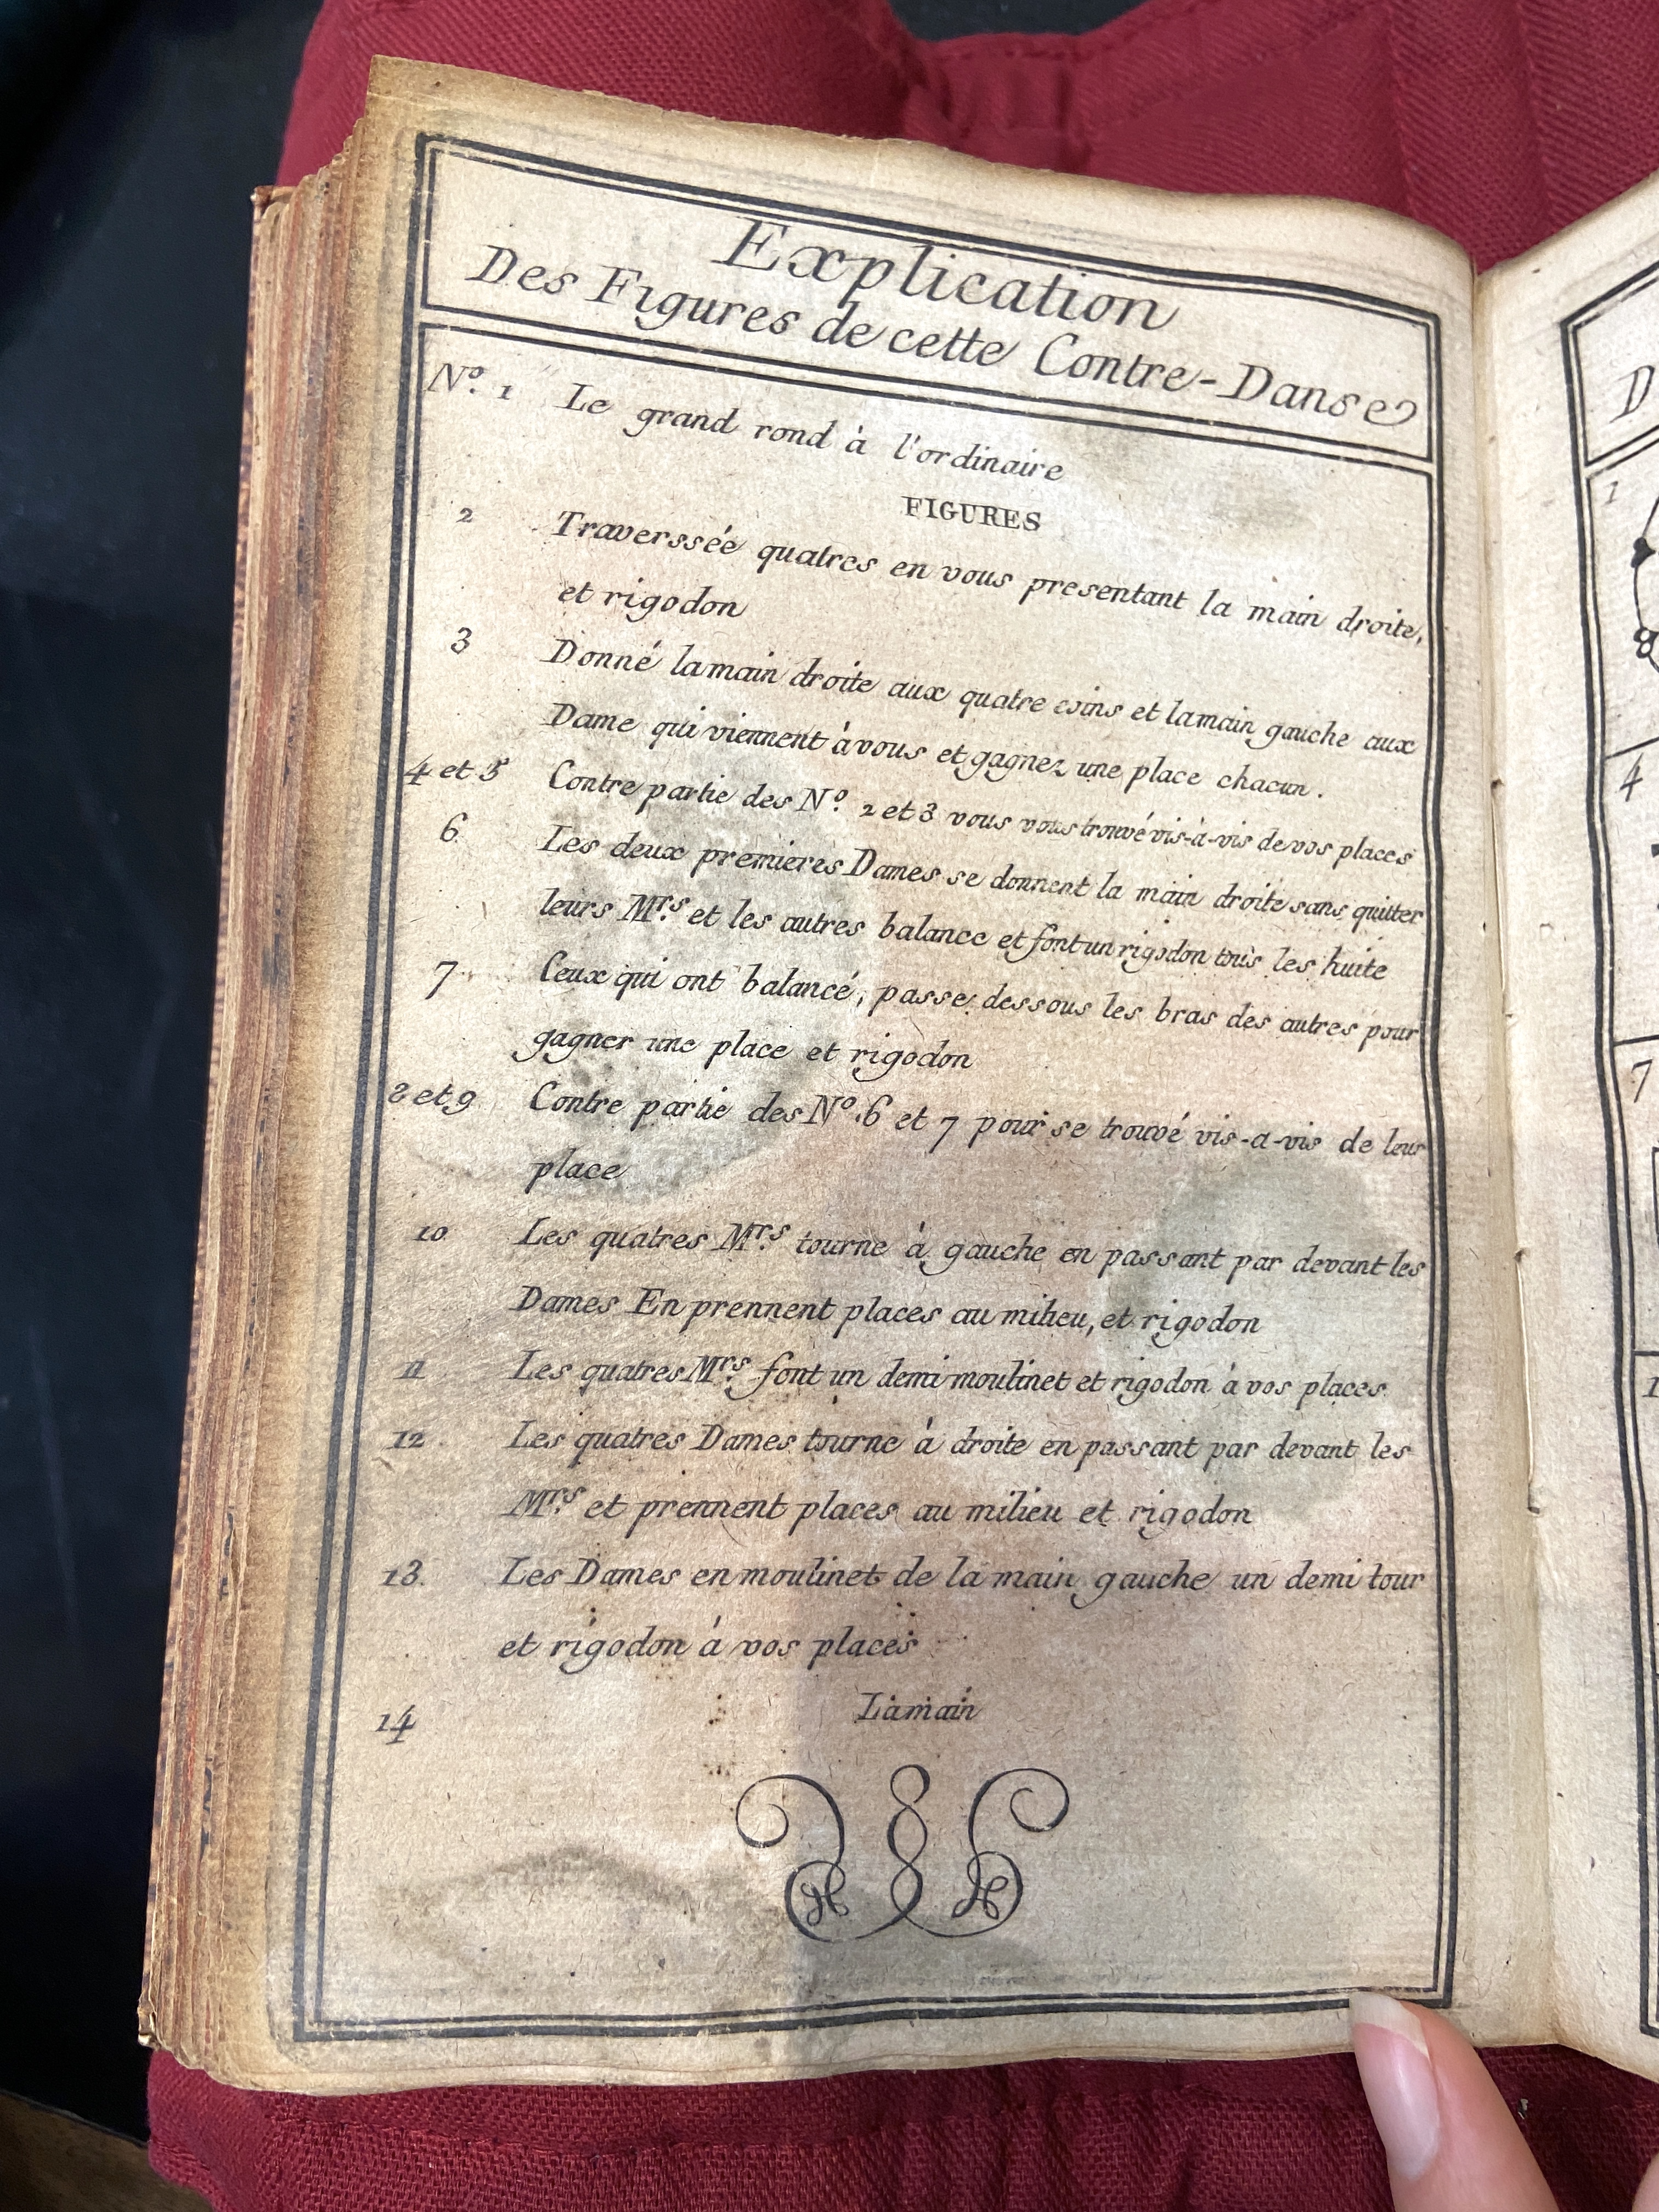 Explication
Des Figures de cette Contre-Danse
No. 1 Le grand rond à l'ordinaire
FIGURES
2 Traverssée quatres en vous presentant la main droite,
et rigodon
3 Donné lamain droite aux quatre coins et lamain gauche aux
Dame qui viennent à vous et gagnez une place chacun.
4 et 5 Contre partie des No. 2 et 3 vous vous trouvé vis-à-vis de vos places
6 Les deux premieres Dames se donnent la main droite sans quitter
leurs Mrs. et les autres balance et font un rigodon tous les huite
7 Ceux qui ont balancé, passe dessous les bras des autres pour
gagner une place et rigodon
8 et 9 Contre partie des No. 6 et 7 pour se trouvé vis-a-vis de leur
place
10 Les quatres Mrs. tourne à gauche en passant par devant les
Dames En prennent places au milieu, et rigodon
11 Les quatres Mrs. font un demi moulinet et rigodon à vos places.
12 Les quatres Dames tourne à droite en passant par devant les
Mrs. et prennent places au milieu et rigodon
13. Les Dames en moulinet de la main gauche un demi tour
et rigodon à vos places
14 Lamain
D
1
8
4
7
1